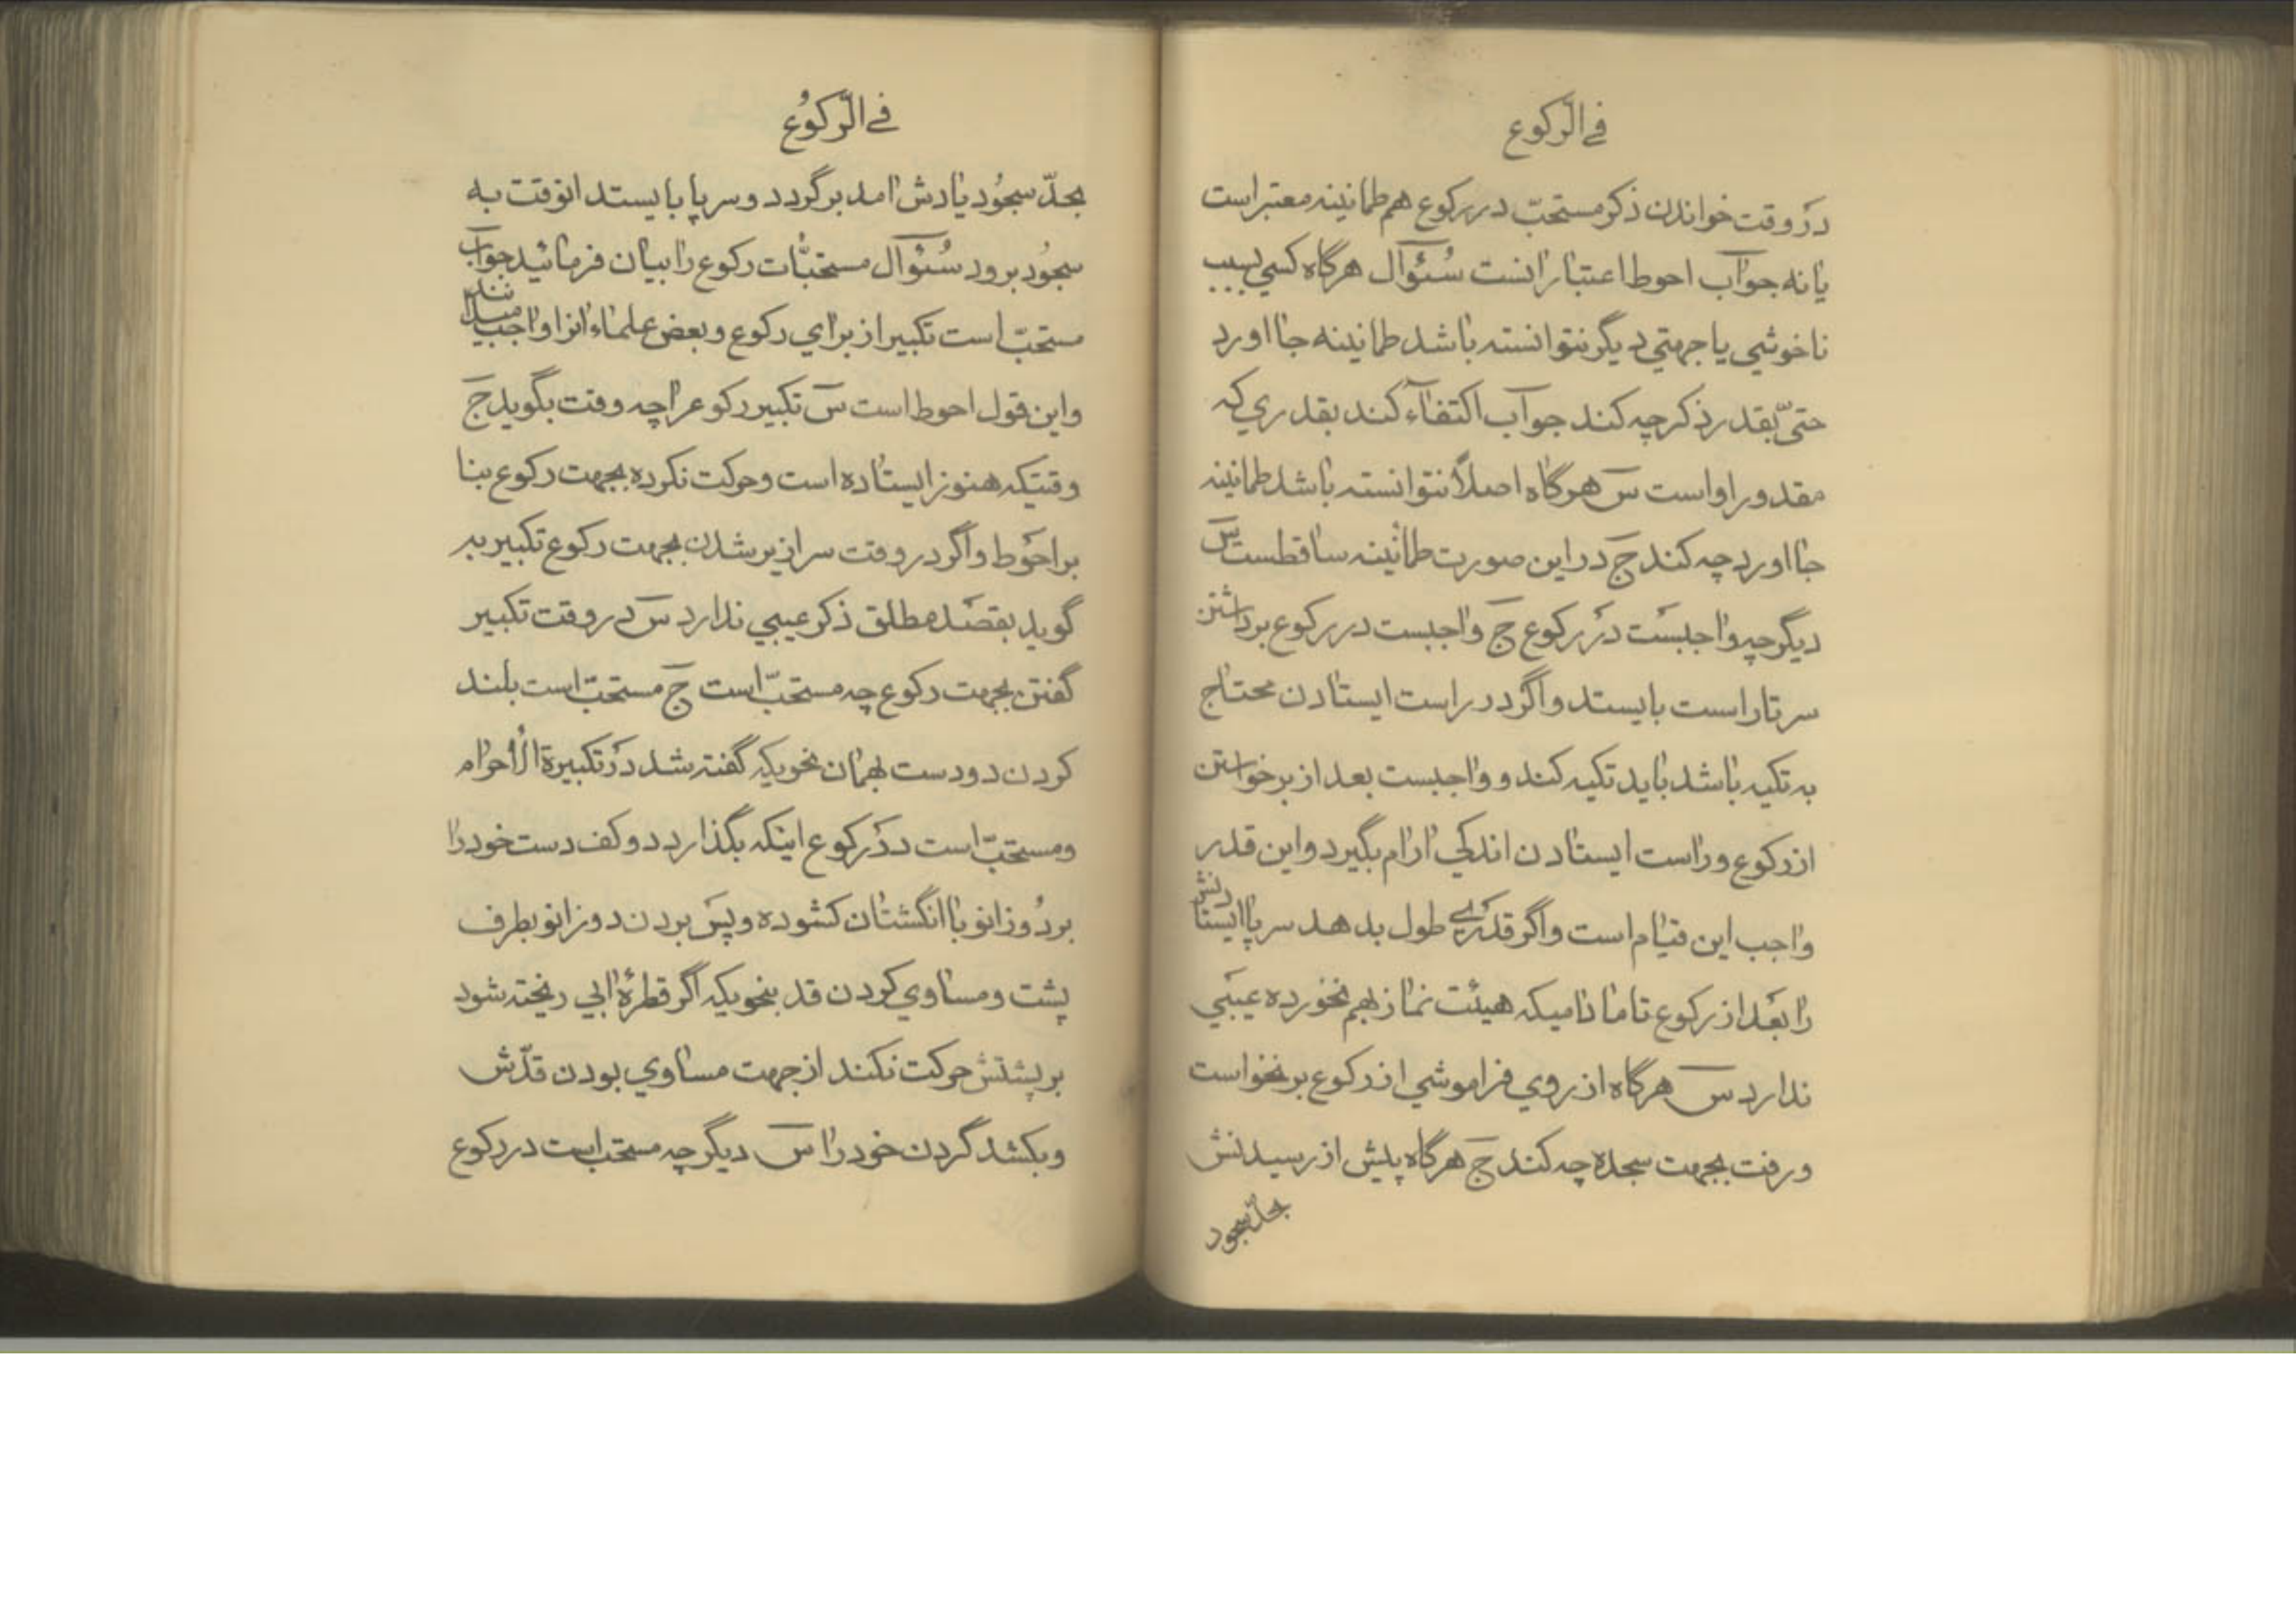 في الرّكوع
در وقت خواندن ذکر مستحبّ در رکوع هم طمانینه معتبر است
یا نه جوآب احوط اعتبار انست سُئوآل هرگاه کسي بسبب
ناخوشي یا جهتي دیگر نتوانسته باشد طمانینه جا اورد
حتیّ بقدر ذکر چه کند جوآب اکتفآء کند بقدري که
مقدور او است سَ هرگاه اصلاً نتوانسته باشد طمانینه
جا اورد چه کند جَ در این صورت طمانینه ساقطست سَ
دیگر چه واجبست در رکوع جَ واجبست در رکوع برداشتن
سر تا راست بایستد و اگر در راست ایستادن محتاج
به تکیه باشد باید تکیه کند و واجبست بعد از برخواستن
از رکوع و راست ایستادن اندکي ارام بگیرد و این قدر
واجب این قیام است و اگر قدرے طول بدهد سرپا ایستادنش
را بعَد از رکوع تا مادامیکه هیئت نماز بهم نخورده عیبَي
ندارد سَ هرگاه از روي فراموشي از رکوع برنخواست
و رفت بجهت سجده چه کند جَ هرگاه پیش از رسیدنش
بحدّ سجود
في الرّكوُع
بحدّ سجُود یادش امد برگردد و سرپا بایستد انوقت به
سجُود برود سُئوآل مستحبّات رکوع را بیان فرمائید جوآب
مستحبّ است تکبیر از براي رکوع و بعض علماء انرا واجب میدانند
و این قول احوط است سَ تکبیر رکوعرا چه وقت بگوید جَ
وقتیکه هنوز ایستاده است و حرکت نکرده بجهت رکوع بنا
بر احوَط و اگر در وقت سرازیر شدن بجهت رکوع تکبیر به
گوید بقصَد مطلق ذکر عیبي ندارد سَ در وقت تکبیر
گفتن بجهت رکوع چه مستحبّ است جَ مستحبّ است بلند
کردن دو دست بهمان نحویکه گفته شد در تکبیرة الأحرام
و مستحبّ است در رکوع اینکه بگذارد دو کف دست خود را
بر دُو زانو با انگشتان کشوده و پسَ بردن دو زانو بطرف
پشت و مساوي کردن قد بنحویکه اگر قطرهٔ ابي ریخته شود
بر پشتش حرکت نکند از جهت مساوي بودن قدّش
و بکشد گردن خود را سَ دیگر چه مستحب است در رکوع